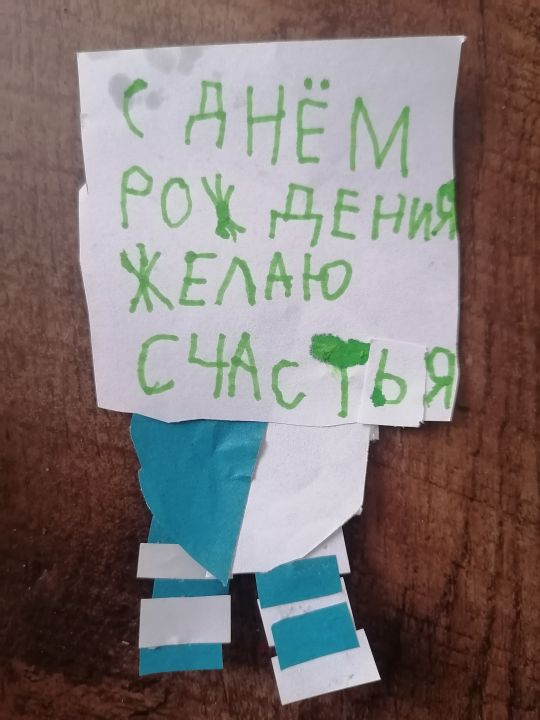 С ДНЁМ
РОЖДЕНИЯ
ЖЕЛАЮ
СЧАСТЬЯ